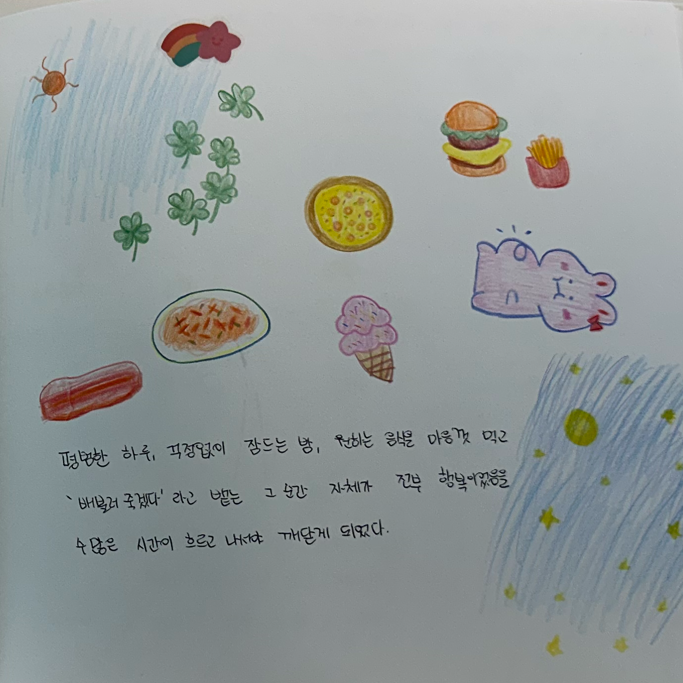 평범한 하루, 걱정없이 잠드는 밤, 원하는 음식을 마음껏 먹고
'배불러 죽겠다' 라고 뱉는 그 순간 자체가 전부 행복이었음을
수많은 시간이 흐르고 나서야 깨닫게 되었다.